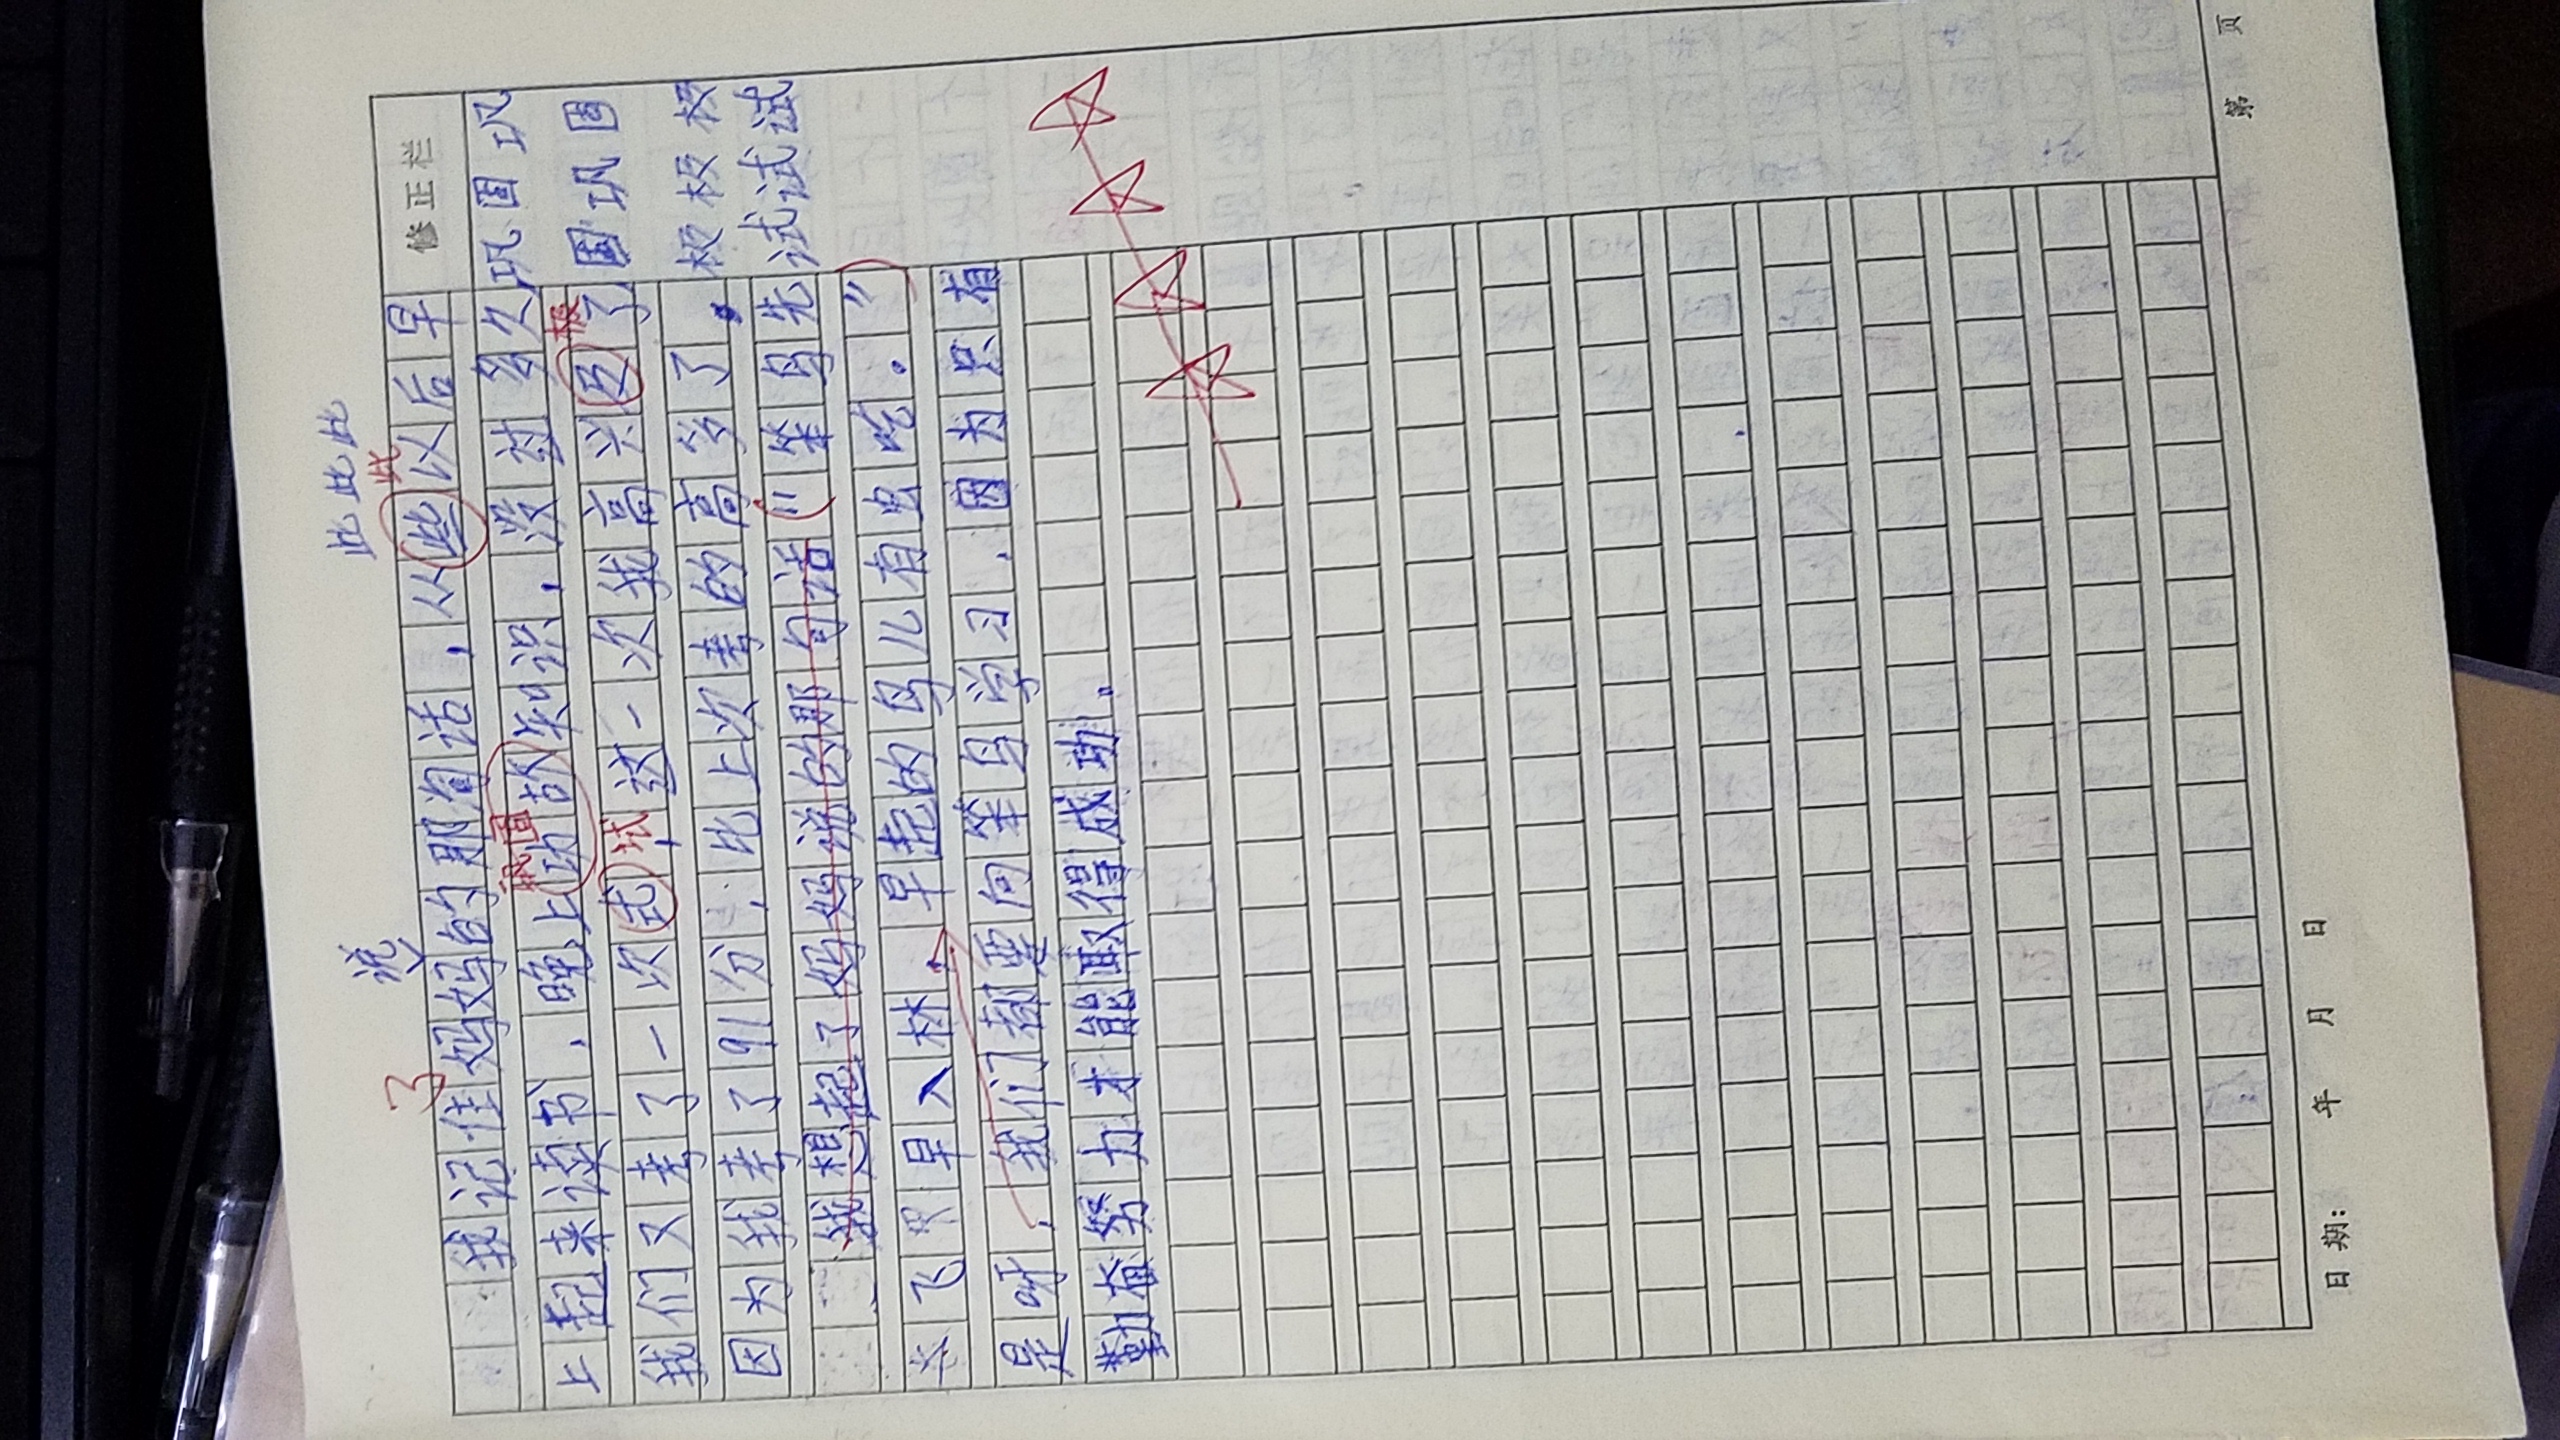 修正栏
此此此此
说
了
此
我记住妈妈的那句话，从些以后早
上起来读书，晚上功故知识，没过多久
巩固
巩固巩
我们又考了一次式，这一次我高兴及了
试
极
固巩固
因为我考了91分，比上次考的高多了。
极极极
我想起了妈妈说的那句话“笨鸟先
试试试
飞早入林，早起的鸟儿有虫吃。”
是呀，我们都要向笨鸟学习，因为只有
勤奋努力才能取得成功。
日期：
年
月
日
第
页